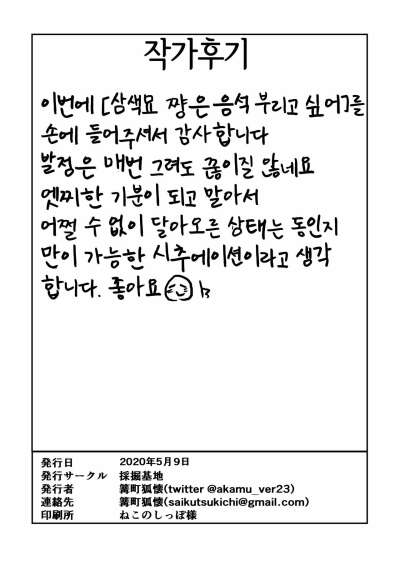 작가후기
이번에 [삼색묘 쨩은 응석 부리고 싶어]를
손에 들어주셔서 감사합니다
발정은 매번 그려도 끊이질 않네요
엣찌한 기분이 되고 말아서
어쩔 수 없이 달아오른 상태는 동인지
만이 가능한 시츄에이션이라고 생각
합니다. 좋아요
発行日 2020年5月9日
発行サークル 採掘基地
発行者 篝町狐懐(twitter @akamu_ver23)
連絡先 篝町狐懐(saikutsukichi@gmail.com)
印刷所 ねこのしっぽ様